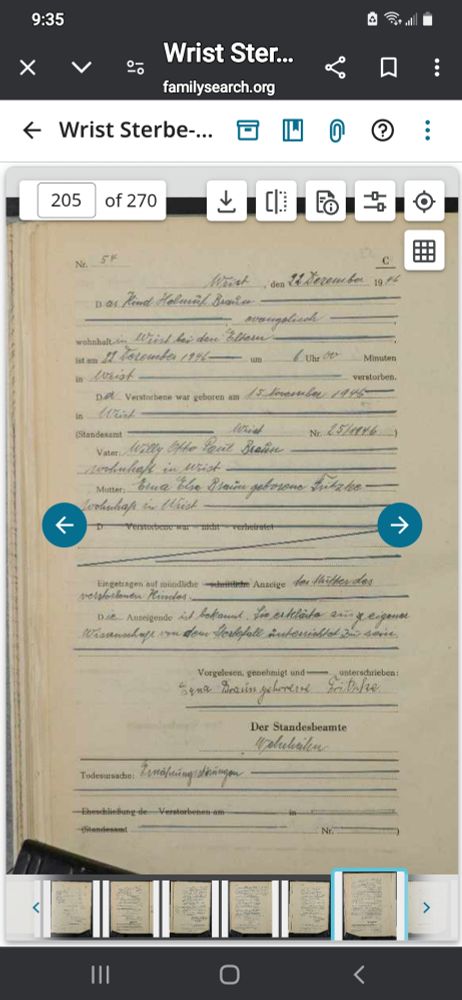 9:35
Wrist Ster...
familysearch.org
Wrist Sterbe-...
205 of 270
C
Nr. 54
Wrist, den 22 Dezember 1946
Das Kind Helmut Braun
evangelisch
wohnhaft in Wrist bei den Eltern
ist am 22 Dezember 1946 um 6 Uhr 00 Minuten
in Wrist verstorben.
D Verstorbene war geboren am 15 November 1946
in Wrist
(Standesamt Wrist Nr. 25/1946)
Vater: Willy Otto Paul Braun
wohnhaft in Wrist
Mutter: Erna Else Braun geborene
wohnhaft in Wrist
D Verstorbene war — nicht — verheiratet
Eingetragen auf mündliche — schriftliche Anzeige der Mutter des
verstorbenen Kindes.
Die Anzeigende ist bekannt. Sie erklärte aus eigener
Wissenschaft von dem Sterbefall unterrichtet zu sein.
Vorgelesen, genehmigt und unterschrieben:
Erna Braun geborene
Der Standesbeamte
Todesursache: Ernährungsstörungen
Eheschließung de Verstorbenen am in
(Standesamt Nr. )